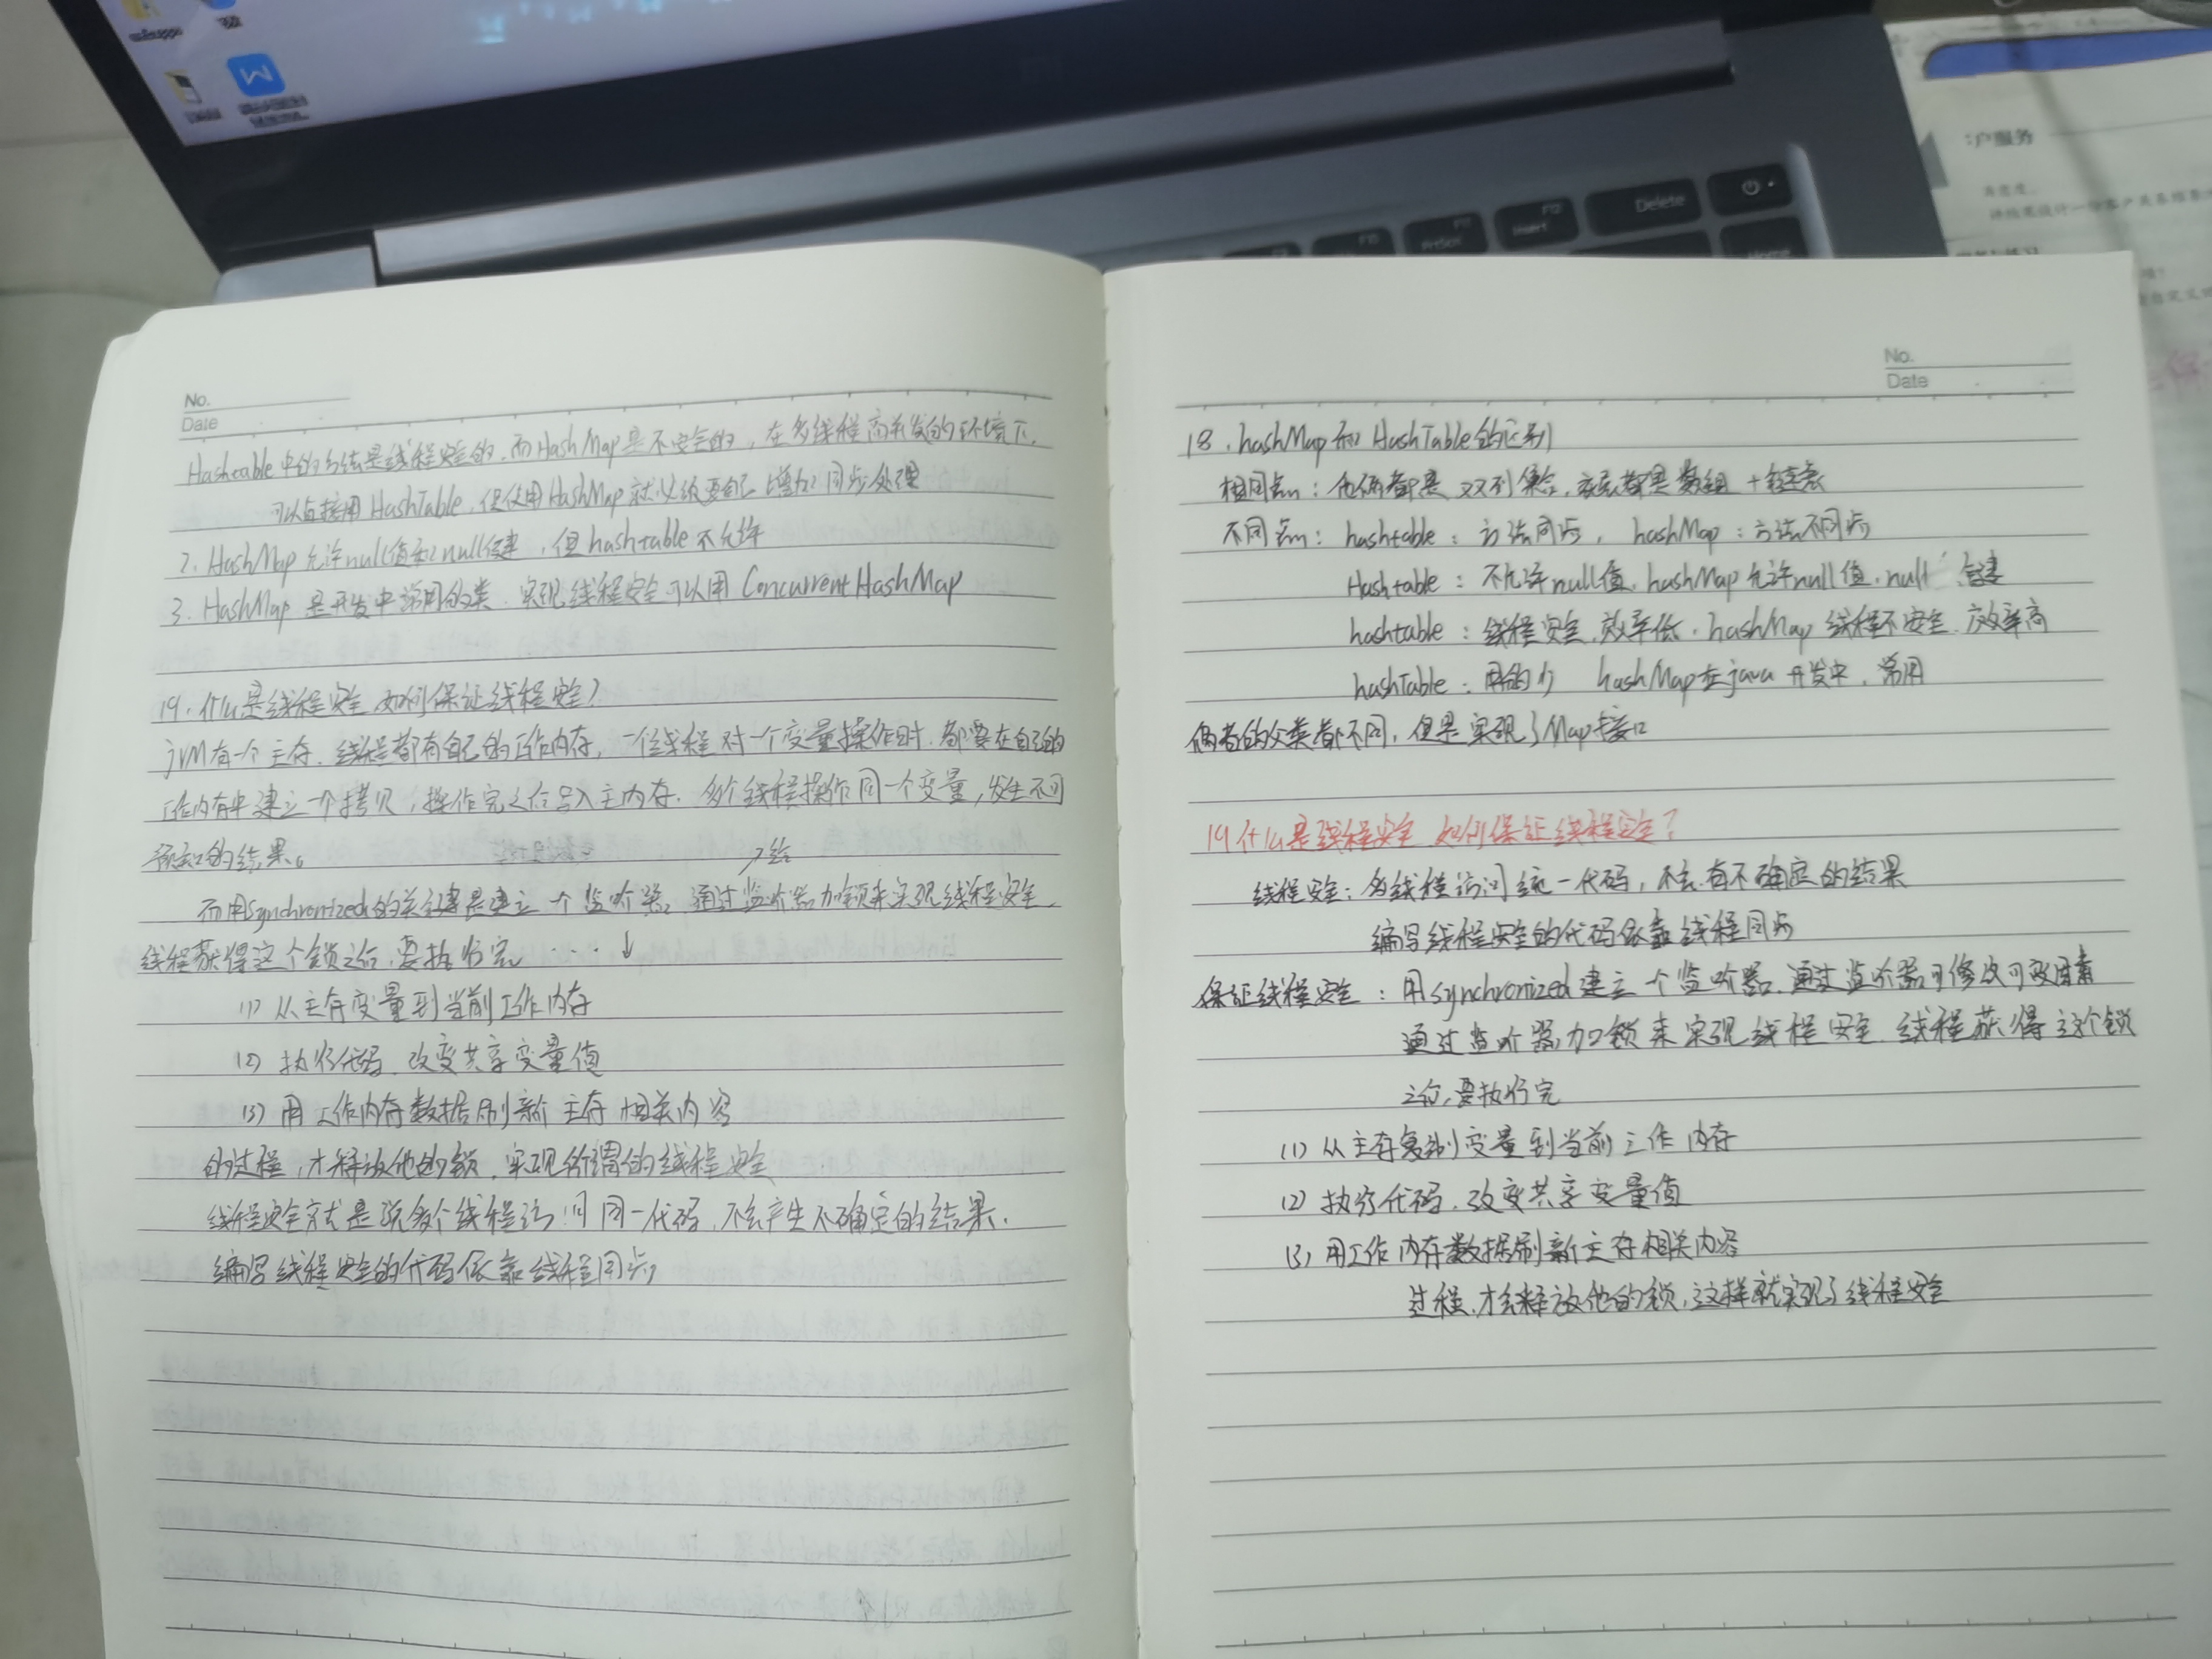 No.
Date
Hashtable中的方法是线程安全的,而HashMap是不安全的,在多线程高并发的环境下,
可以直接用HashTable,但使用HashMap就必须要自己增加同步处理
2. HashMap允许null值和null键,但hashtable不允许
3. HashMap是开发中常用的类,实现线程安全可以用ConcurrentHashMap
19.什么是线程安全,如何保证线程安全?
jvM有一个主存,线程都有自己的工作内存,一个线程对一个变量操作时,都要在自己的
工作内存中建立一个拷贝,操作完之后写入主内存.多个线程操作同一个变量,发生不可
预知的结果。
而用Synchronized的关键是建立一个监听器,通过监听器加锁来实现线程安全,
线程获得这个锁之后,要执行完 ... ↓
(1) 从主存变量到当前工作内存
(2) 执行代码,改变共享变量值
(3) 用工作内存数据刷新主存相关内容
的过程,才释放他的锁,实现所谓的线程安全
线程安全就是说多个线程访问同一代码,不会产生不确定的结果.
编写线程安全的代码依靠线程同步
No.
Date
18.hashMap和HashTable的区别
相同点:他俩都是双列集合,底层都是数组+链表
不同点:hashtable:方法同步,hashMap:方法不同步
Hashtable:不允许null值,hashMap允许null值,null键
hashtable:线程安全,效率低.hashMap线程不安全,效率高
hashTable:用的少 hashMap在java开发中,常用
俩者的父类都不同,但是实现了Map接口
19什么是线程安全,如何保证线程安全?
线程安全:多线程访问统一代码,不会有不确定的结果
编写线程安全的代码依靠线程同步
保证线程安全:用synchronized建立一个监听器,通过监听器可修改可变因素
通过监听器加锁来实现线程安全,线程获得这个锁
之后,要执行完
(1)从主存复制变量到当前工作内存
(2)执行代码,改变共享变量值
(3)用工作内存数据刷新主存相关内容
过程,才会释放他的锁,这样就实现了线程安全
Delete
Insert
PrtScn
Home
户服务